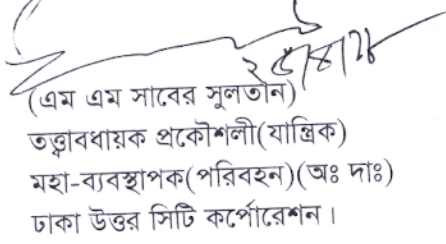 (এম এম সাবের সুলতান)
তত্ত্বাবধায়ক প্রকৌশলী(যান্ত্রিক)
মহা-ব্যবস্থাপক(পরিবহন)(অঃ দাঃ)
ঢাকা উত্তর সিটি কর্পোরেশন।